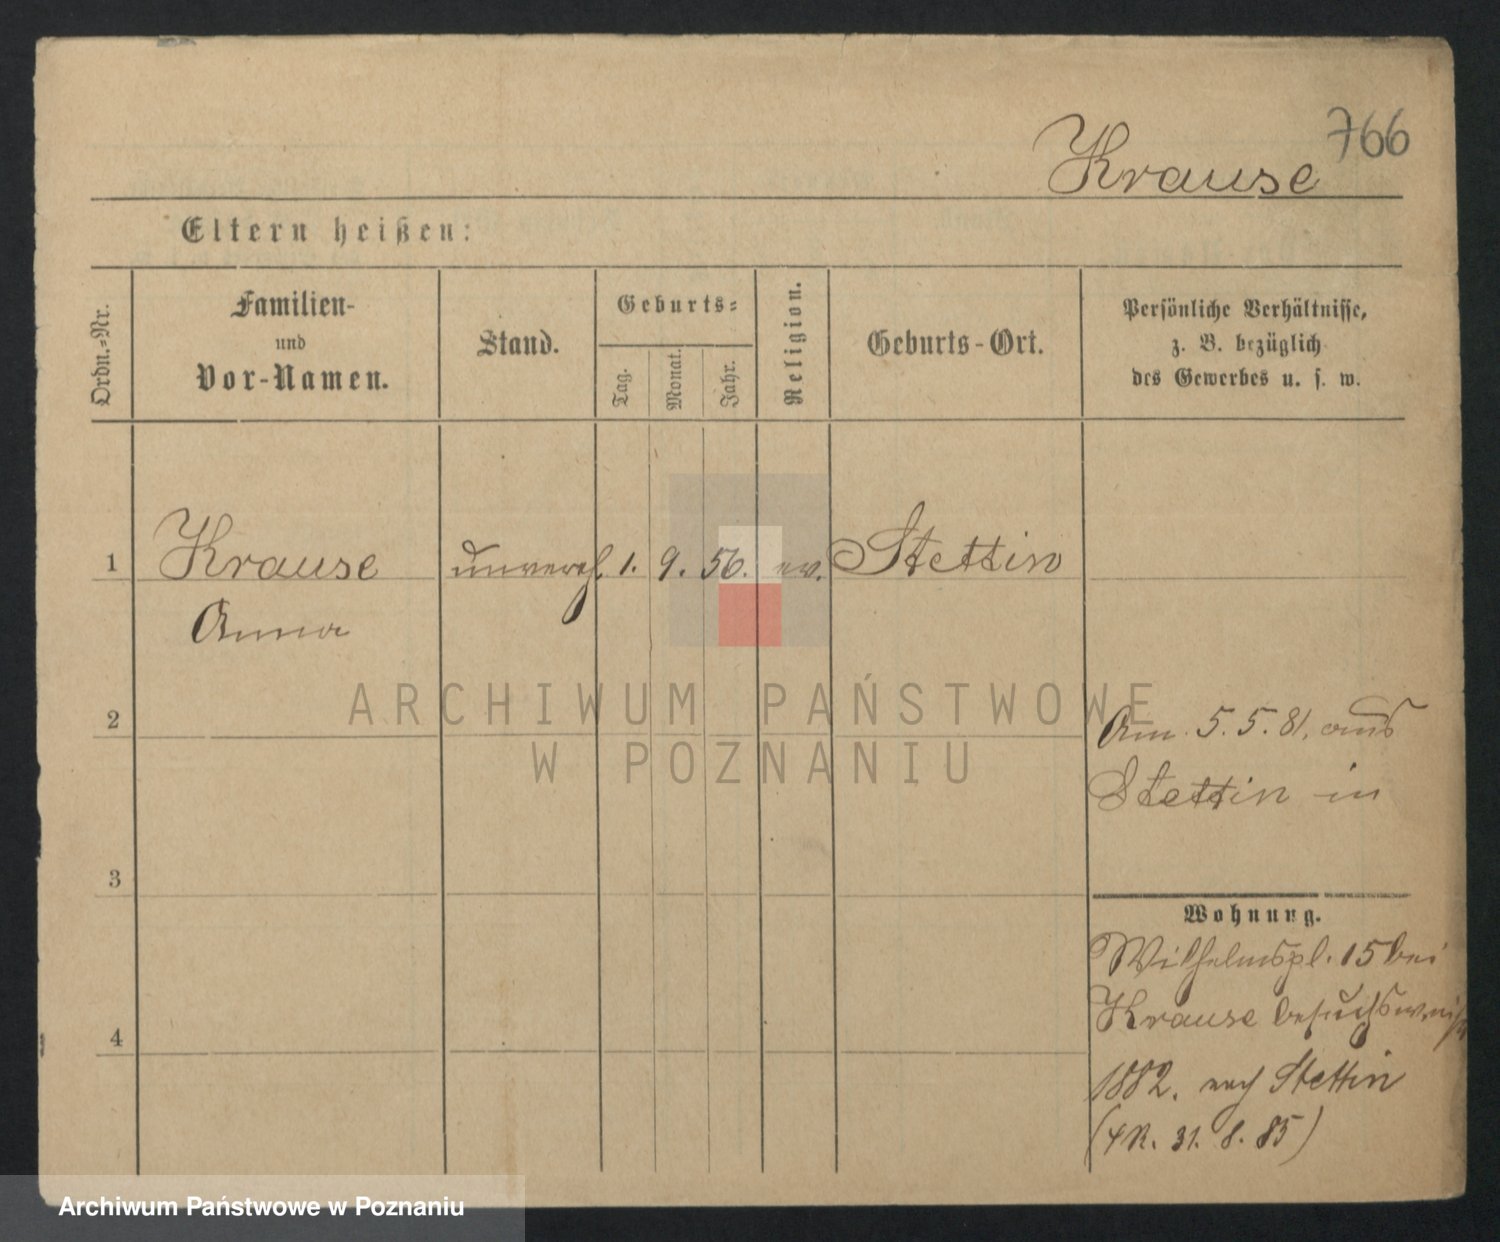 766
Krause
Eltern heißen:
Ordn.-Nr.
Familien-
und
Vor-Namen.
Stand.
Geburts-
Tag.
Monat.
Jahr.
Religion.
Geburts-Ort.
Persönliche Verhältnisse,
z. B. bezüglich
des Gewerbes u. s. w.
1 Krause unvereh. 1. 9. 56. ev. Stettin
Anna
ARCHIWUM PAŃSTWOWE
W POZNANIU
2
Am 5. 5. 81. aus
Stettin in
3
Wohnung.
Wilhelmspl. 15 bei
Krause besuchsweise
4
1882. nach Stettin
R. 31. 8. 85)
Archiwum Państwowe w Poznaniu